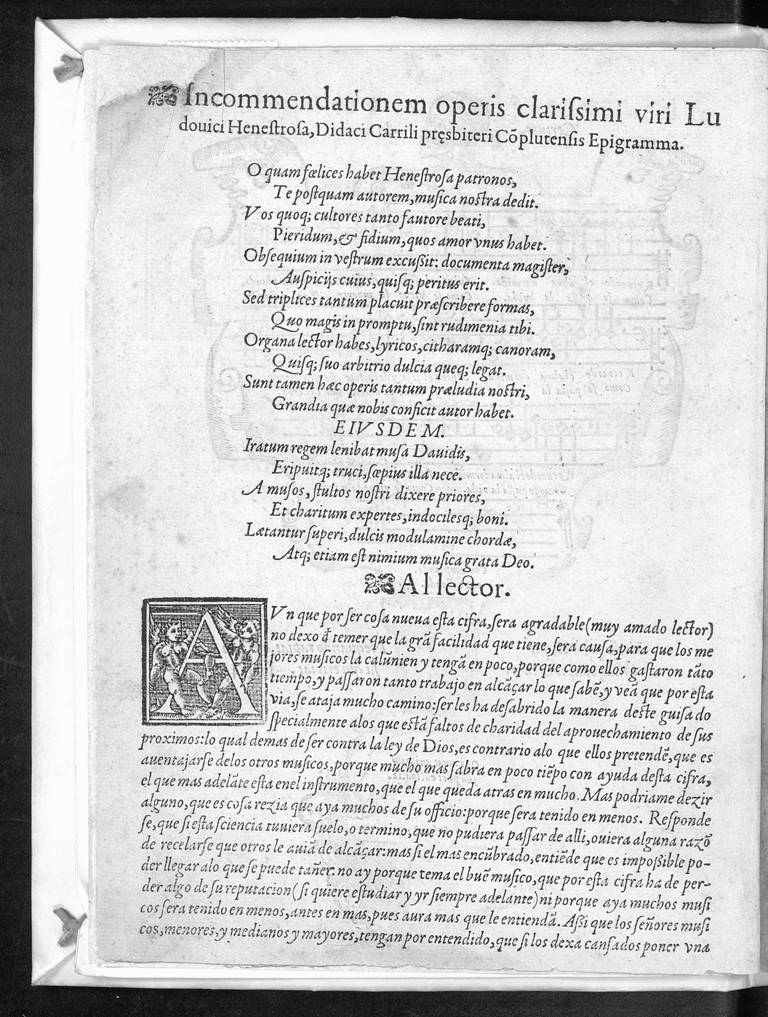 Incommendationem operis clariſsimi viri Lu
douici Heneſtroſa, Didaci Carrili pręsbiteri Cõplutenſis Epigramma.
O quam fœlices habet Heneſtroſa patronos,
Te poſtquam autorem, muſica noſtra dedit.
Vos quoq; cultores tanto fautore beati,
Pieridum, & fidium, quos amor vnus habet.
Obſequium in veſtrum excuſsit: documenta magiſter,
Auſpicijs cuius, quiſq; peritus erit.
Sed triplices tantum placuit præſcribere formas,
Quo magis in promptu, ſint rudimenia tibi.
Organa lector habes, lyricos, citharamq; canoram,
Quiſq; ſuo arbitrio dulcia queq; legat.
Sunt tamen hæc operis tantum præludia noſtri,
Grandia quæ nobis conficit autor habet.
EIVSDEM.
Iratum regem lenibat muſa Dauidis,
Eripuitq; truci, ſæpius illa nece.
A muſos, ſtultos noſtri dixere priores,
Et charitum expertes, indocileſq; boni.
Lætantur ſuperi, dulcis modulamine chordæ,
Atq; etiam eſt nimium muſica grata Deo.
Al lector.
A Vn que por ſer coſa nueua eſta cifra, ſera agradable (muy amado lector)
no dexo q̃ temer que la grã facilidad que tiene, ſera cauſa, para que los me
jores muſicos la calũnien y tengã en poco, porque como ellos gaſtaron tãto
tiempo, y paſſaron tanto trabajo en alcãçar lo que ſabẽ, y veã que por eſta
via, ſe ataja mucho camino: ſer les ha deſabrido la manera deſte guiſa do
ſpecialmente alos que eſtã faltos de charidad del aprouechamiento de ſus
proximos: lo qual demas de ſer contra la ley de Dios, es contrario alo que ellos pretendẽ, que es
auentajarſe delos otros muſicos, porque mucho mas ſabra en poco tiẽpo con ayuda deſta cifra,
el que mas adelãte eſta enel inſtrumento, que el que queda atras en mucho. Mas podriame dezir
alguno, que es coſa rezia que aya muchos de ſu officio: porque ſera tenido en menos. Reſponde
ſe, que ſi eſta ſciencia tuuiera ſuelo, o termino, que no pudiera paſſar de alli, ouiera alguna razõ
de recelarſe que otros le auiã de alcãçar: mas ſi el mas encũbrado, entiẽde que es impoſsible po-
der llegar alo que ſe puede tañer: no ay porque tema el buẽ muſico, que por eſta cifra ha de per-
der algo de ſu reputacion (ſi quiere eſtudiar y yr ſiempre adelante) ni porque aya muchos muſi
cos ſera tenido en menos, antes en mas, pues aura mas que le entiendã. Aſsi que los ſeñores muſi
cos, menores, y medianos y mayores, tengan por entendido, que ſi los dexa canſados poner vna